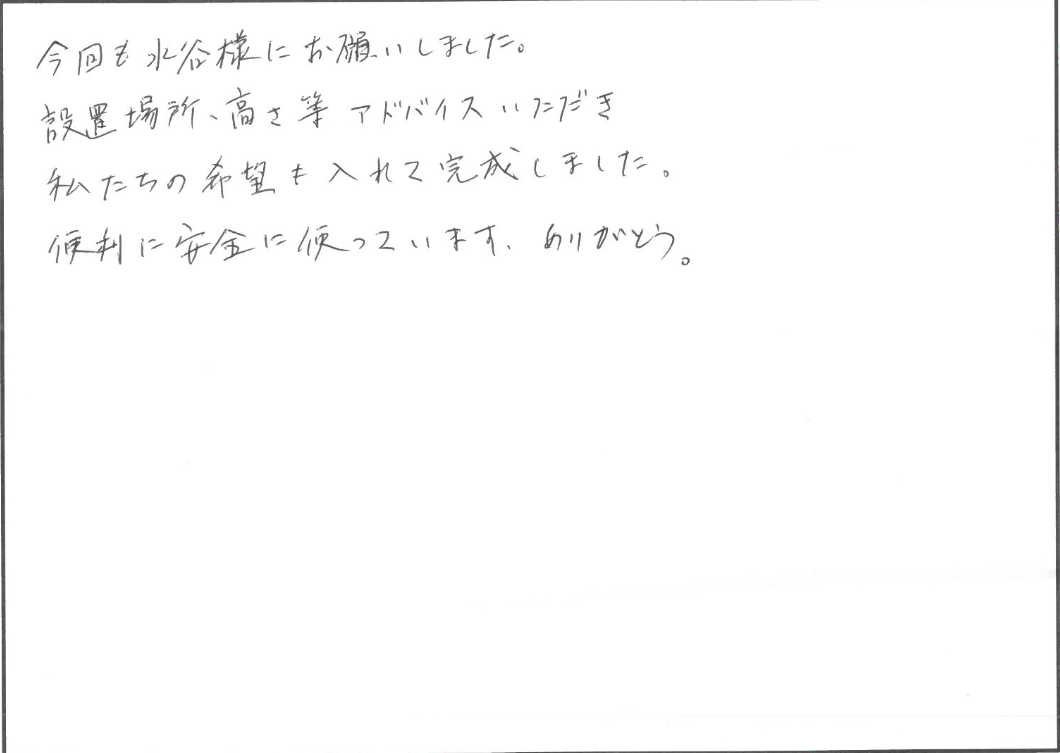 今回も水谷様にお願いしました。
設置場所、高さ等アドバイスいただき
私たちの希望も入れて完成しました。
便利に安全に使っています、ありがとう。